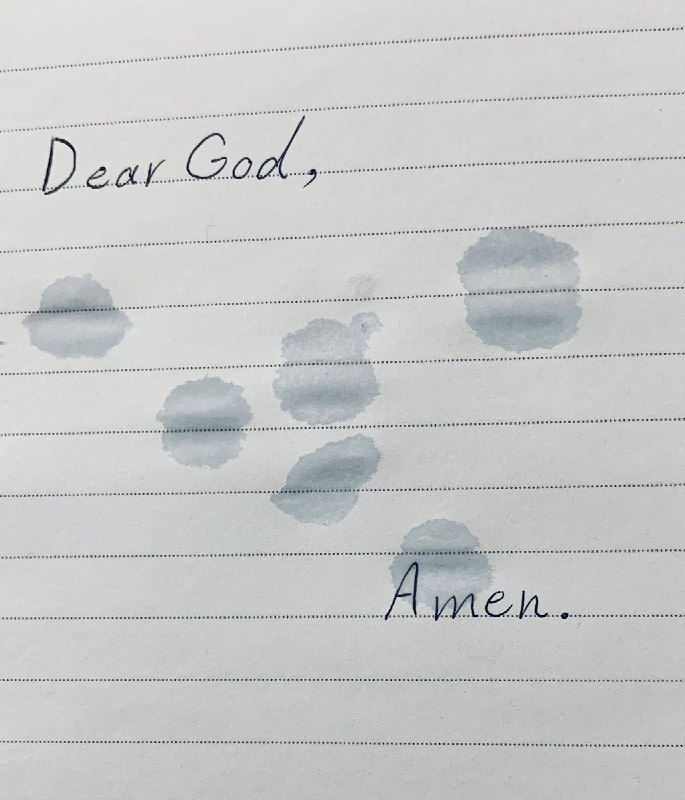 Dear God,
Amen.